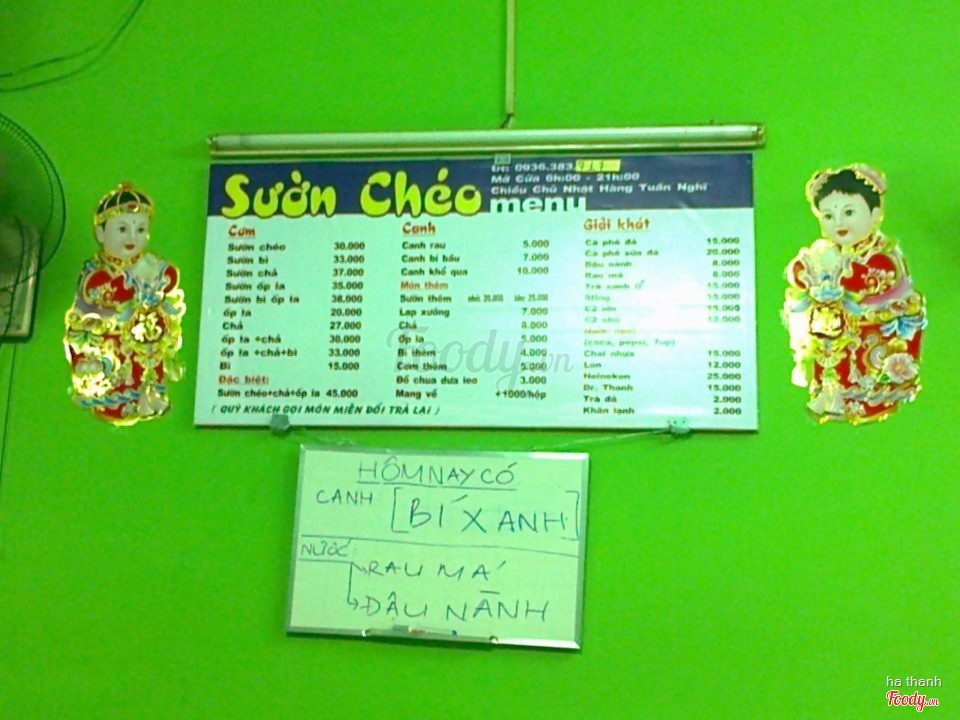 Sườn Chéo
Mở Cửa 6h:00 - 21h:00
Chiều Chủ Nhật Hàng Tuần Nghỉ
menu
Cơm
Sườn chéo 30.000
Sườn bì 33.000
Sườn chả 37.000
Sườn ốp la 35.000
Sườn bì ốp la 38.000
ốp la 20.000
Chả 27.000
ốp la +chả 30.000
ốp la +chả+bì 33.000
Bì 15.000
Đặc biệt:
Sườn chéo+chả+ốp la 45.000
( QUÝ KHÁCH GỌI MÓN MIỄN ĐỔI TRẢ LẠI )
Canh
Canh rau 5.000
Canh bí bầu 7.000
Canh khổ qua 10.000
Món thêm
Sườn thêm nhỏ: 20.000 lớn: 25.000
Lạp xưởng 7.000
Chả 8.000
Ốp la 5.000
Bì thêm 4.000
Cơm thêm 5.000
Đồ chua dưa leo 3.000
Mang về +1000/hộp
Giải khát
Cà phê đá 15.000
Cà phê sữa đá 20.000
Đậu nành 8.000
Rau má 8.000
Trà xanh 15.000
Sting 15.000
C2 lớn 15.000
C2 nhỏ 12.000
(coca, pepsi, 7up)
Chai nhựa 15.000
Lon 12.000
Heineken 25.000
Dr. Thanh 15.000
Trà đá 2.000
Khăn lạnh 2.000
HÔM NAY CÓ
CANH [BÍ XANH]
NƯỚC
RAU MÁ
ĐẬU NÀNH
Foody.vn
ha thanh
Foody.vn